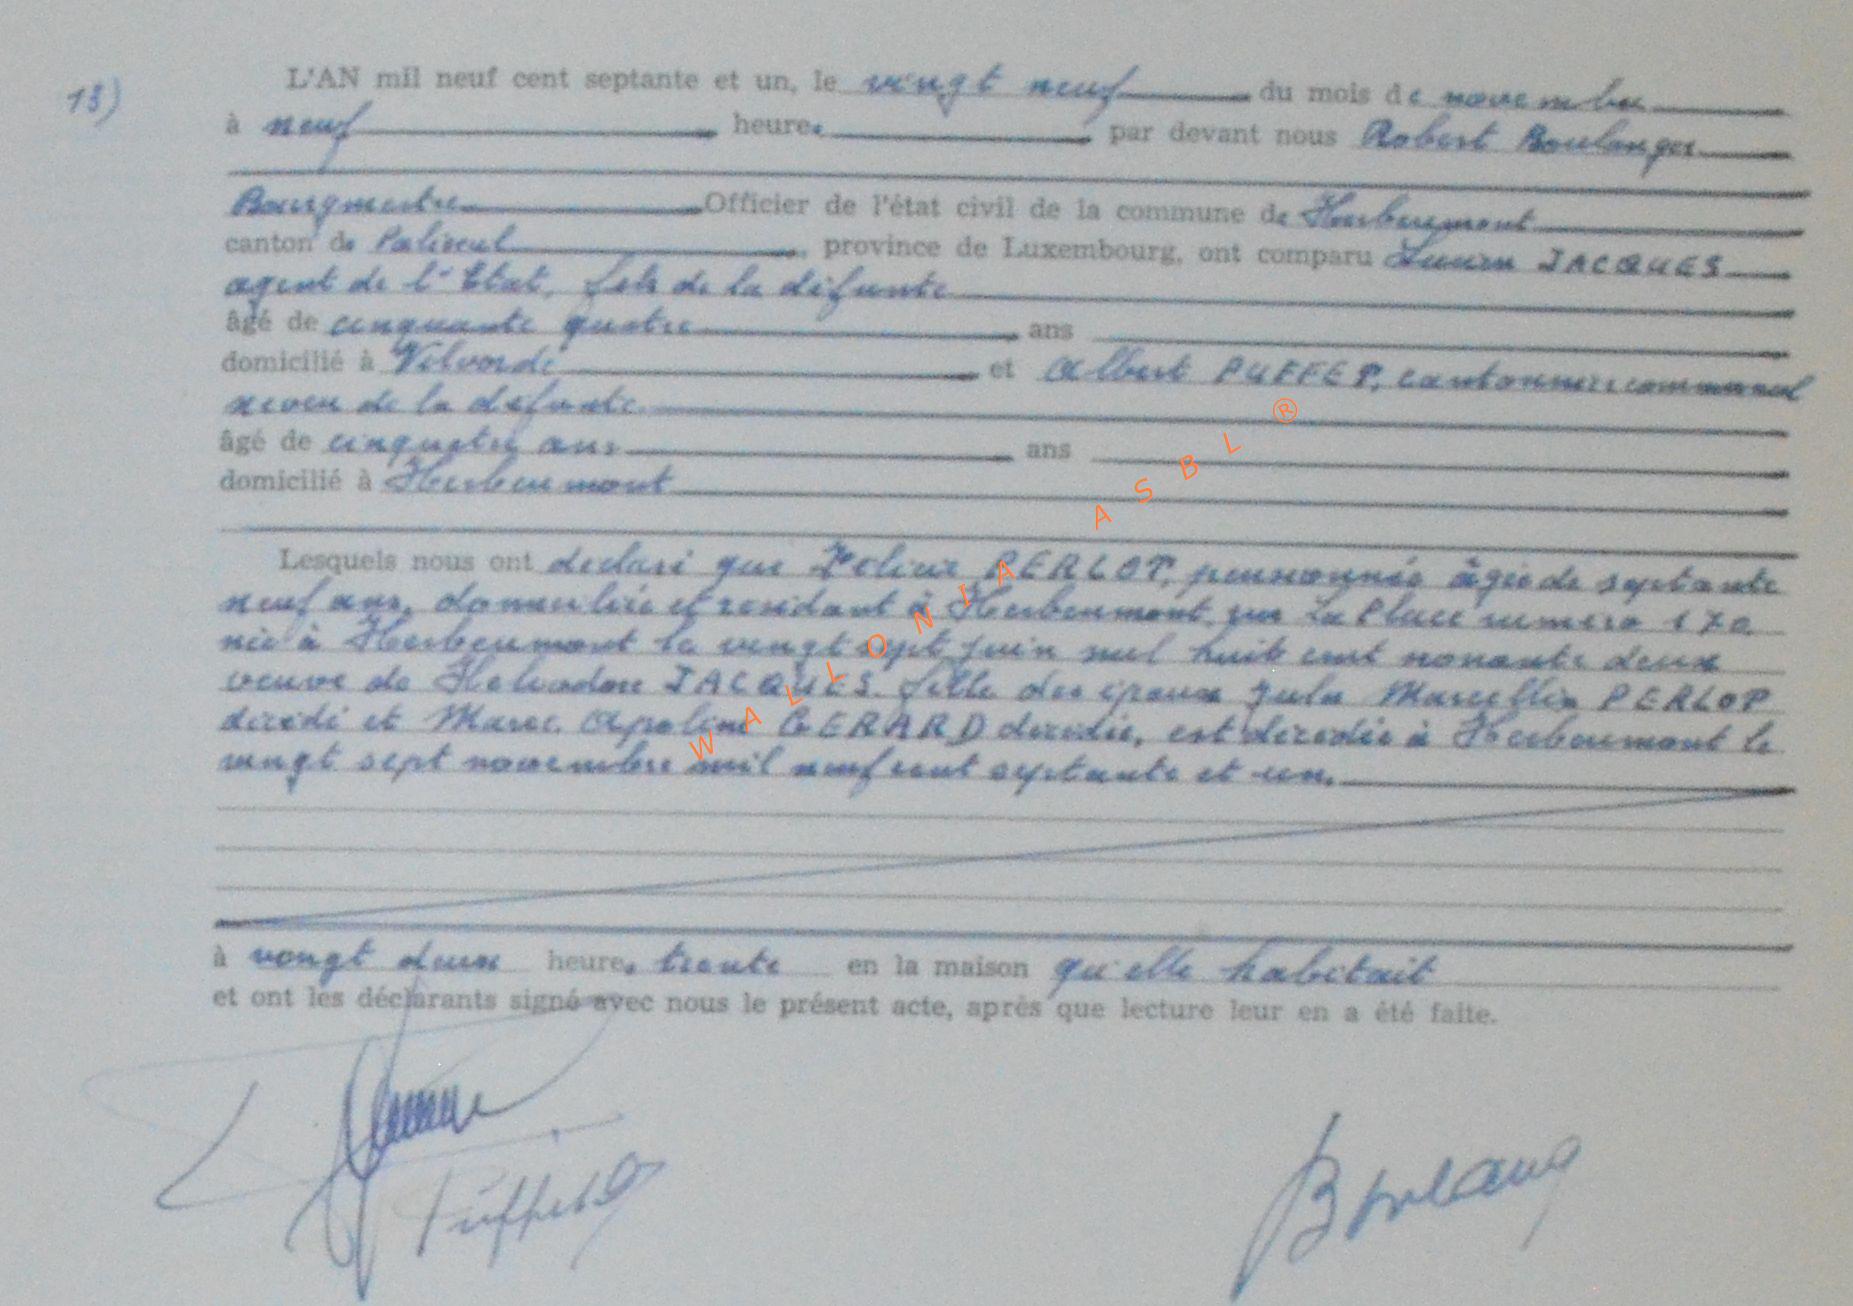 13)
L'AN mil neuf cent septante et un, le vingt neuf du mois de novembre
à neuf heures par devant nous Robert Boulanger
Bourgmestre Officier de l'état civil de la commune de Herbeumont
canton de Paliseul, province de Luxembourg, ont comparu Lucien JACQUES
agent de l'Etat, fils de la défunte
âgé de cinquante quatre ans
domicilié à Vilvorde et Albert PUFFET, cantonnier communal
neveu de la défunte
âgé de ans ans
domicilié à Herbeumont
Lesquels nous ont déclaré que PERLOT, pensionnée âgée de septante
neuf ans, domiciliée et résidant à Herbeumont, sur La Place numéro 170
née à Herbeumont le vingt sept juin mil huit cent nonante deux
veuve de JACQUES fille des époux Jules Marcellin PERLOT
décédé et Marie Apoline GERARD décédée, est décédée à Herbeumont le
vingt sept novembre mil neuf cent septante et un.
à vingt deux heures trente en la maison qu'elle habitait
et ont les déclarants signé avec nous le présent acte, après que lecture leur en a été faite.
Puffet
Boulang
WALLONIA ASBL ®